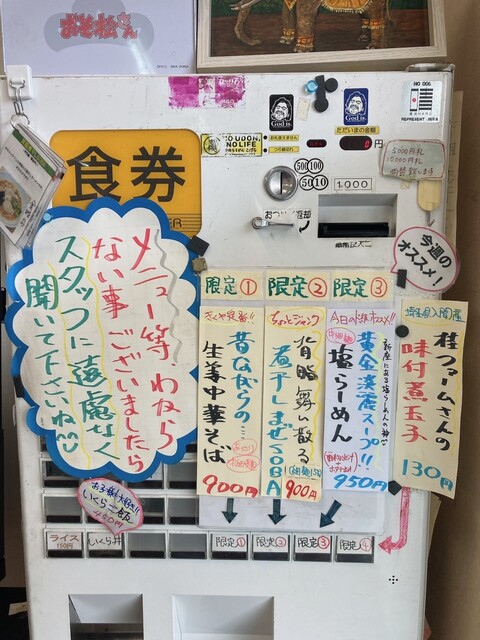 おそ松さん
食券
God is.
God is.
NO 006
REPRESENT
NO UDON,
NO LIFE
ただいまの金額
0
500 100
50 10
1000
5000円札
10000円札
両替致します
今週の
オススメ!
メニュー等、わから
ない事ございましたら
スタッフに遠慮なく
聞いて下さいね
限定①
限定②
限定③
昔ながらの…
生姜中華そば
900円
ちょっとジャンク
背脂舞い散る
煮干しまぜSOBA
900円
塩らーめん
950円
桂ファームさんの
味付煮玉子
130円
いくらご飯
ライス
150円
いくら丼
限定①
限定②
限定③
限定④